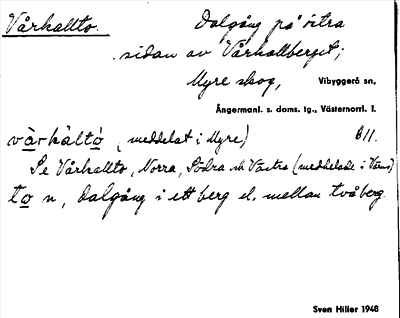 Vårhallto.
Dalgång på östra
sidan av Vårhallberget;
Myre skog, Vibyggerå sn,
Ångermanl. s. doms. tg., Västernorrl. l.
vàrhàltò (meddelat i Myre) B11.
Se Vårhallto, Norra, Södra och Västra (meddelade i
to n, dalgång i ett berg el. mellan två berg.
Sven Hiller 1948